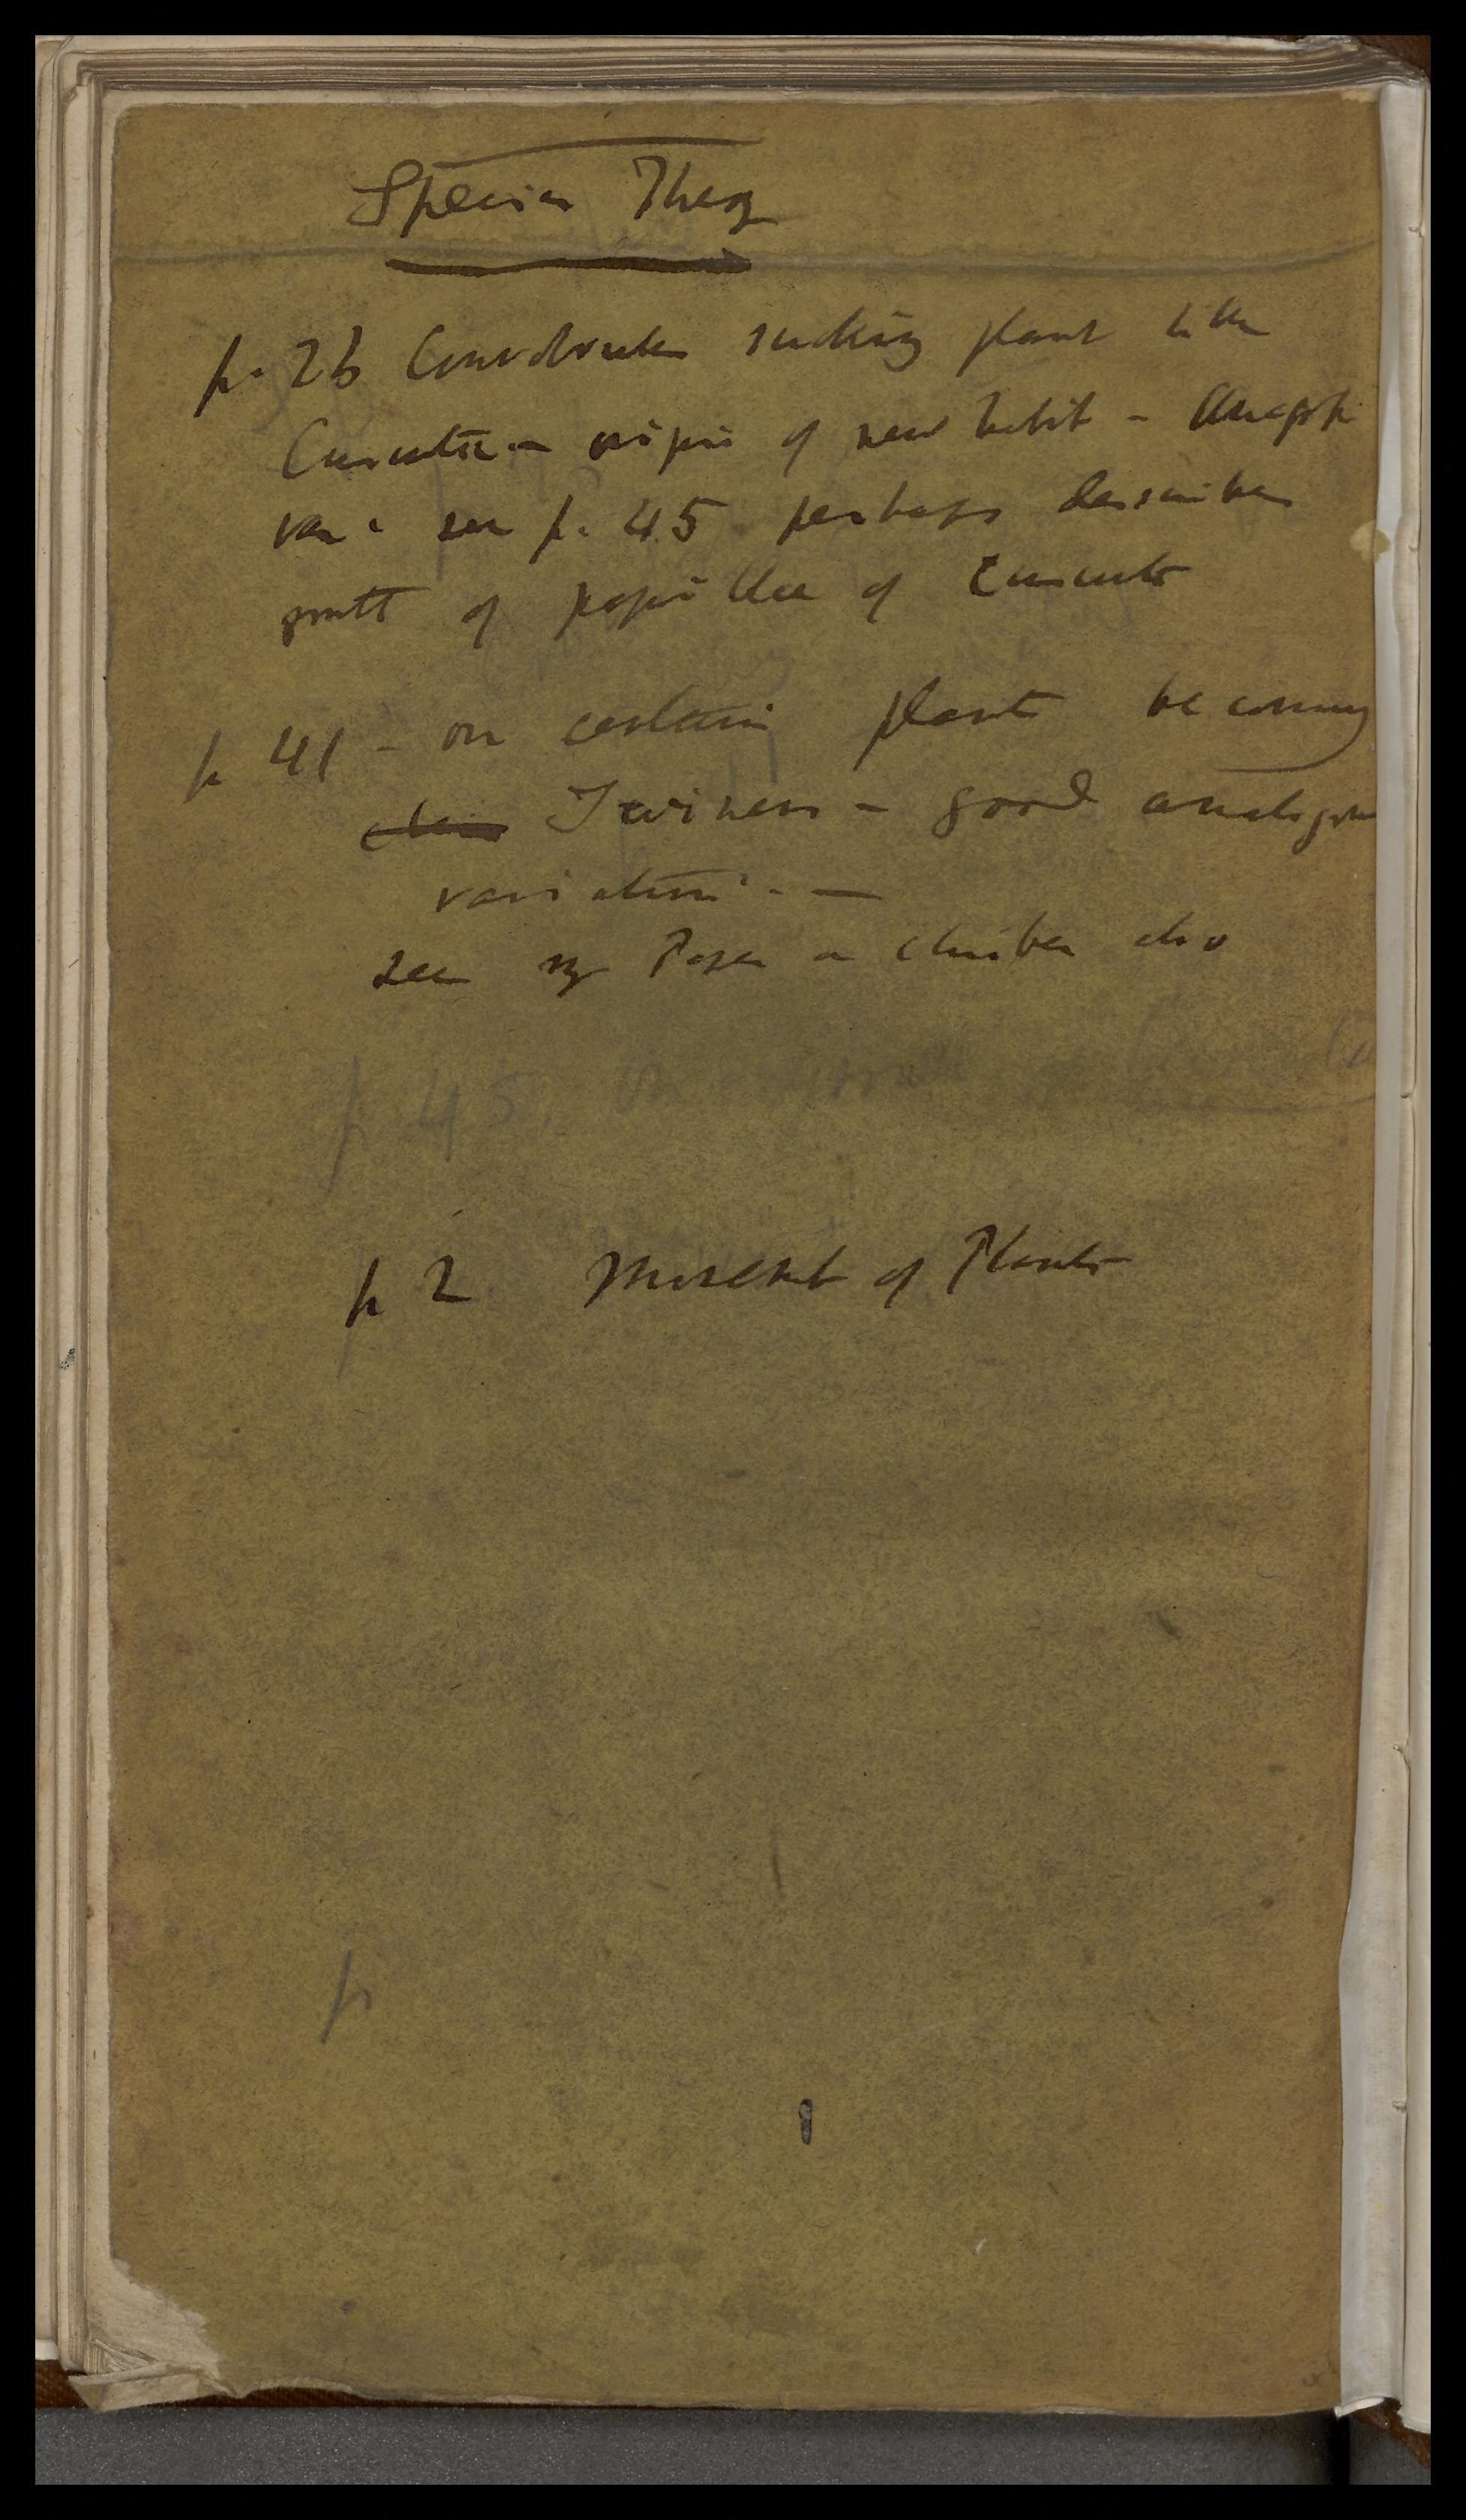 Species Theory
p. 26 Convolvulus sucking plant like
Cuscuta — origin of new habit —
var: see p. 45 perhaps describes
growth of papillae of Cuscuta
p 41 — on certain plants becoming
Twiners — good analogous
variation. —
see my Paper on climbers also
p 45. on growth
p 2 Movement of Plants
p